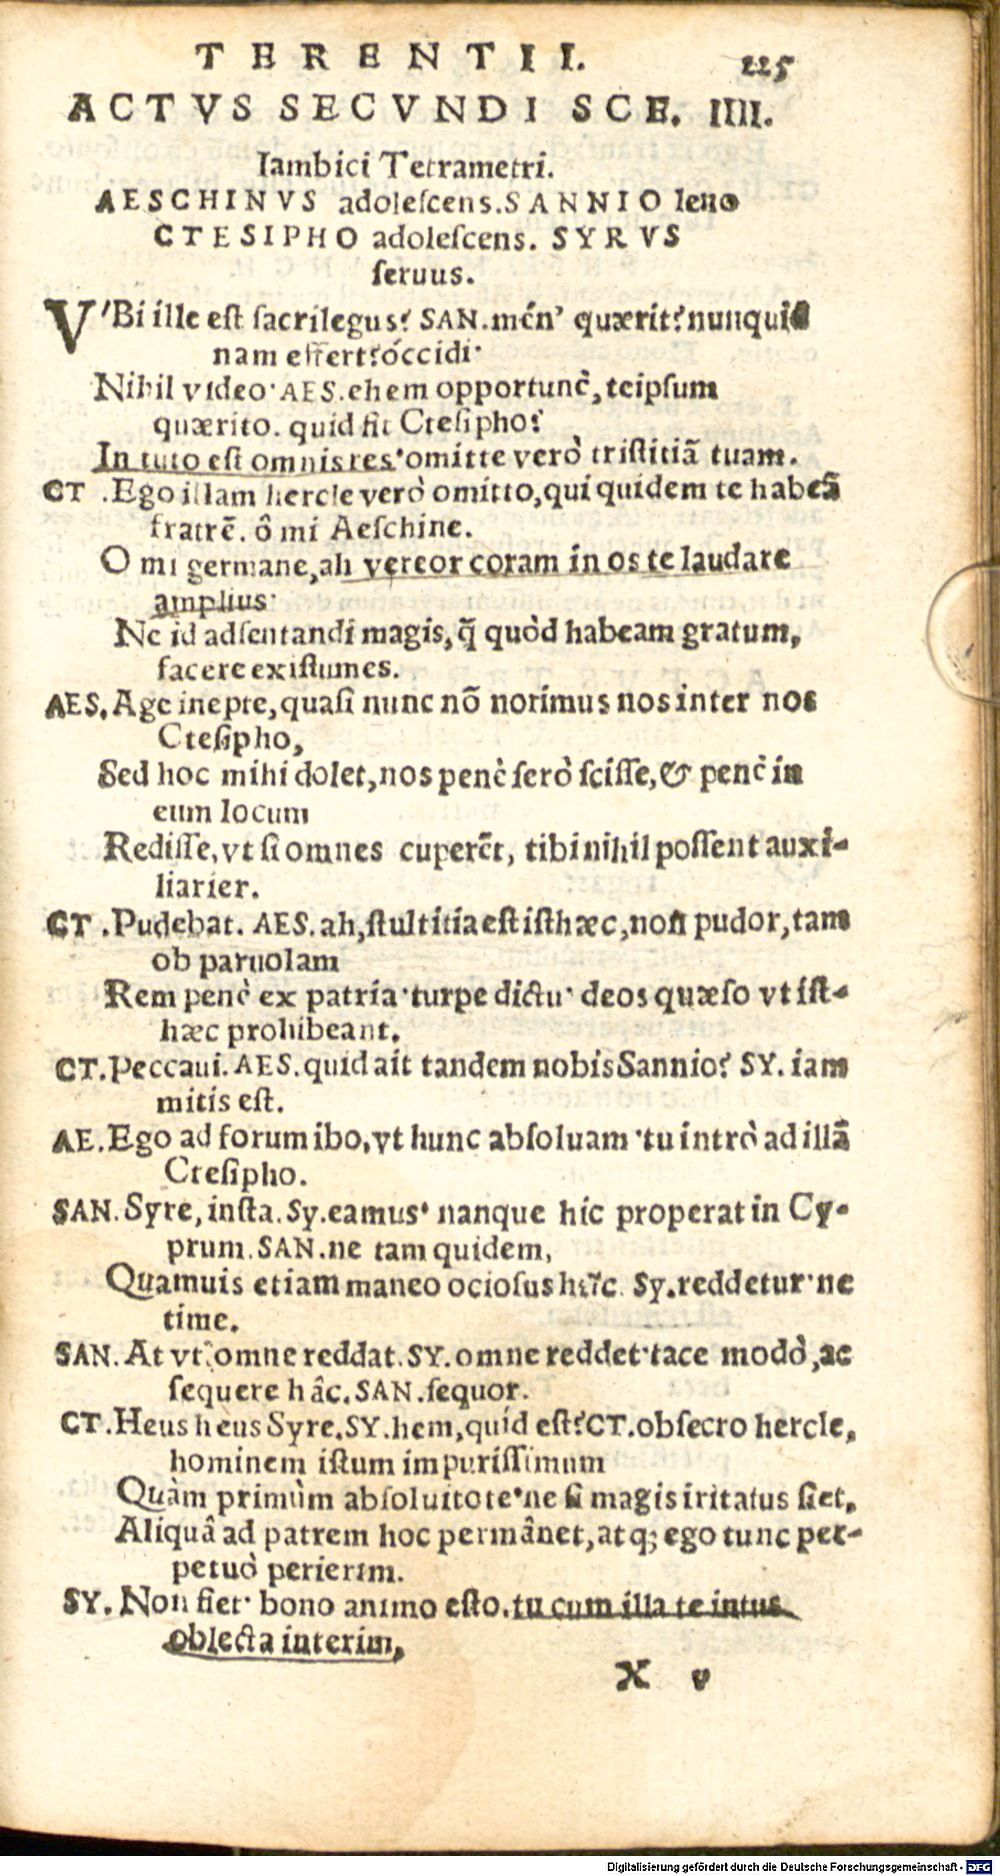 TERENTII. 225
ACTVS SECVNDI SCE. IIII.
Iambici Tetrametri.
AESCHINVS adoleſcens. SANNIO leno
CTESIPHO adoleſcens. SYRVS
ſeruus.
V'Bi ille eſt ſacrilegus? SAN. mén' quærit? nunquid
nam effert? óccidi·
Nihil video· AES. ehem opportunè, teipſum
quærito. quid fit Cteſipho?
In tuto eſt omnis res· omitte verò triſtitiã tuam.
CT. Ego illam hercle verò omitto, qui quidem te habeã
fratrẽ. ô mi Aeſchine.
O mi germane, ah vereor coram in os te laudare
amplius·
Ne id adſentandi magis, q̃ quòd habeam gratum,
facere exiſtimes.
AES. Age inepte, quaſi nunc nõ norimus nos inter nos
Cteſipho,
Sed hoc mihi dolet, nos penè ſerò ſciſſe, & penè in
eum locum
Rediſſe, vt ſi omnes cuperẽt, tibi nihil poſſent auxi-
liarier.
CT. Pudebat. AES. ah, ſtultitia eſt iſthæc, non pudor, tam
ob paruolam
Rem penè ex patria· turpe dictu· deos quæſo vt iſt-
hæc prohibeant.
CT. Peccaui. AES. quid ait tandem nobis Sannio? SY. iam
mitis eſt.
AE. Ego ad forum ibo, vt hunc abſoluam· tu intrò ad illã
Cteſipho.
SAN. Syre, inſta. Sy. eamus· nanque hic properat in Cy-
prum. SAN. ne tam quidem,
Quamuis etiam maneo ocioſus hîc. Sy. reddetur· ne
time.
SAN. At vt omne reddat. SY. omne reddet· tace modò, ac
ſequere hâc. SAN. ſequor.
CT. Heus heus Syre. SY. hem, quid eſt? CT. obſecro hercle,
hominem iſtum impuriſſimum
Quàm primùm abſoluitote· ne ſi magis iritatus ſiet,
Aliquâ ad patrem hoc permânet, atq; ego tunc per-
petuò perierim.
SY. Non fiet· bono animo eſto. tu cum illa te intus
oblecta interim,
X v
Digitalisierung gefördert durch die Deutsche Forschungsgemeinschaft - DFG